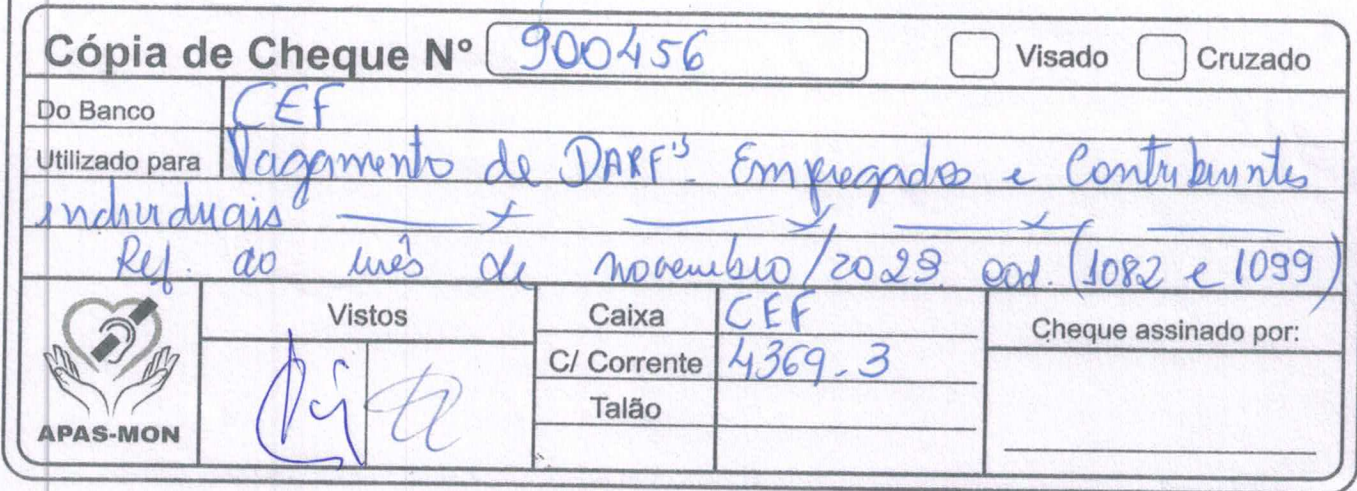 Cópia de Cheque Nº 900456 Visado Cruzado
Do Banco CEF
Utilizado para Pagamento de DARF's Empregados e Contribuintes
individuais
Ref. ao mês de novembro/2023 cod. (1082 e 1099)
Vistos
Caixa CEF
C/ Corrente 4369-3
Talão
Cheque assinado por:
APAS-MON